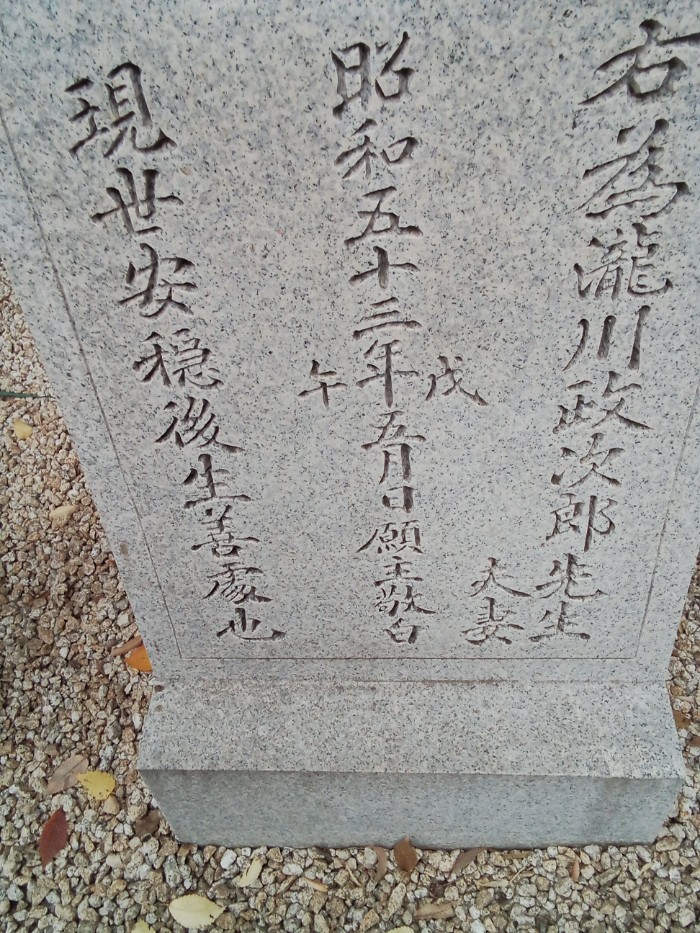 右為瀧川政次郎先生夫妻
昭和五十三年戊午五月日願主敬白
現世安穏後生善處也